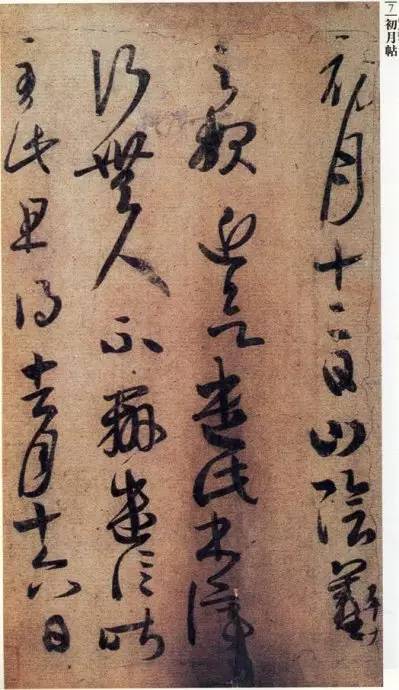 7 初月帖
初月十二日山陰羲
之報近欲遣此書停
行無人不辦遣信昨
至此且得去月十六日